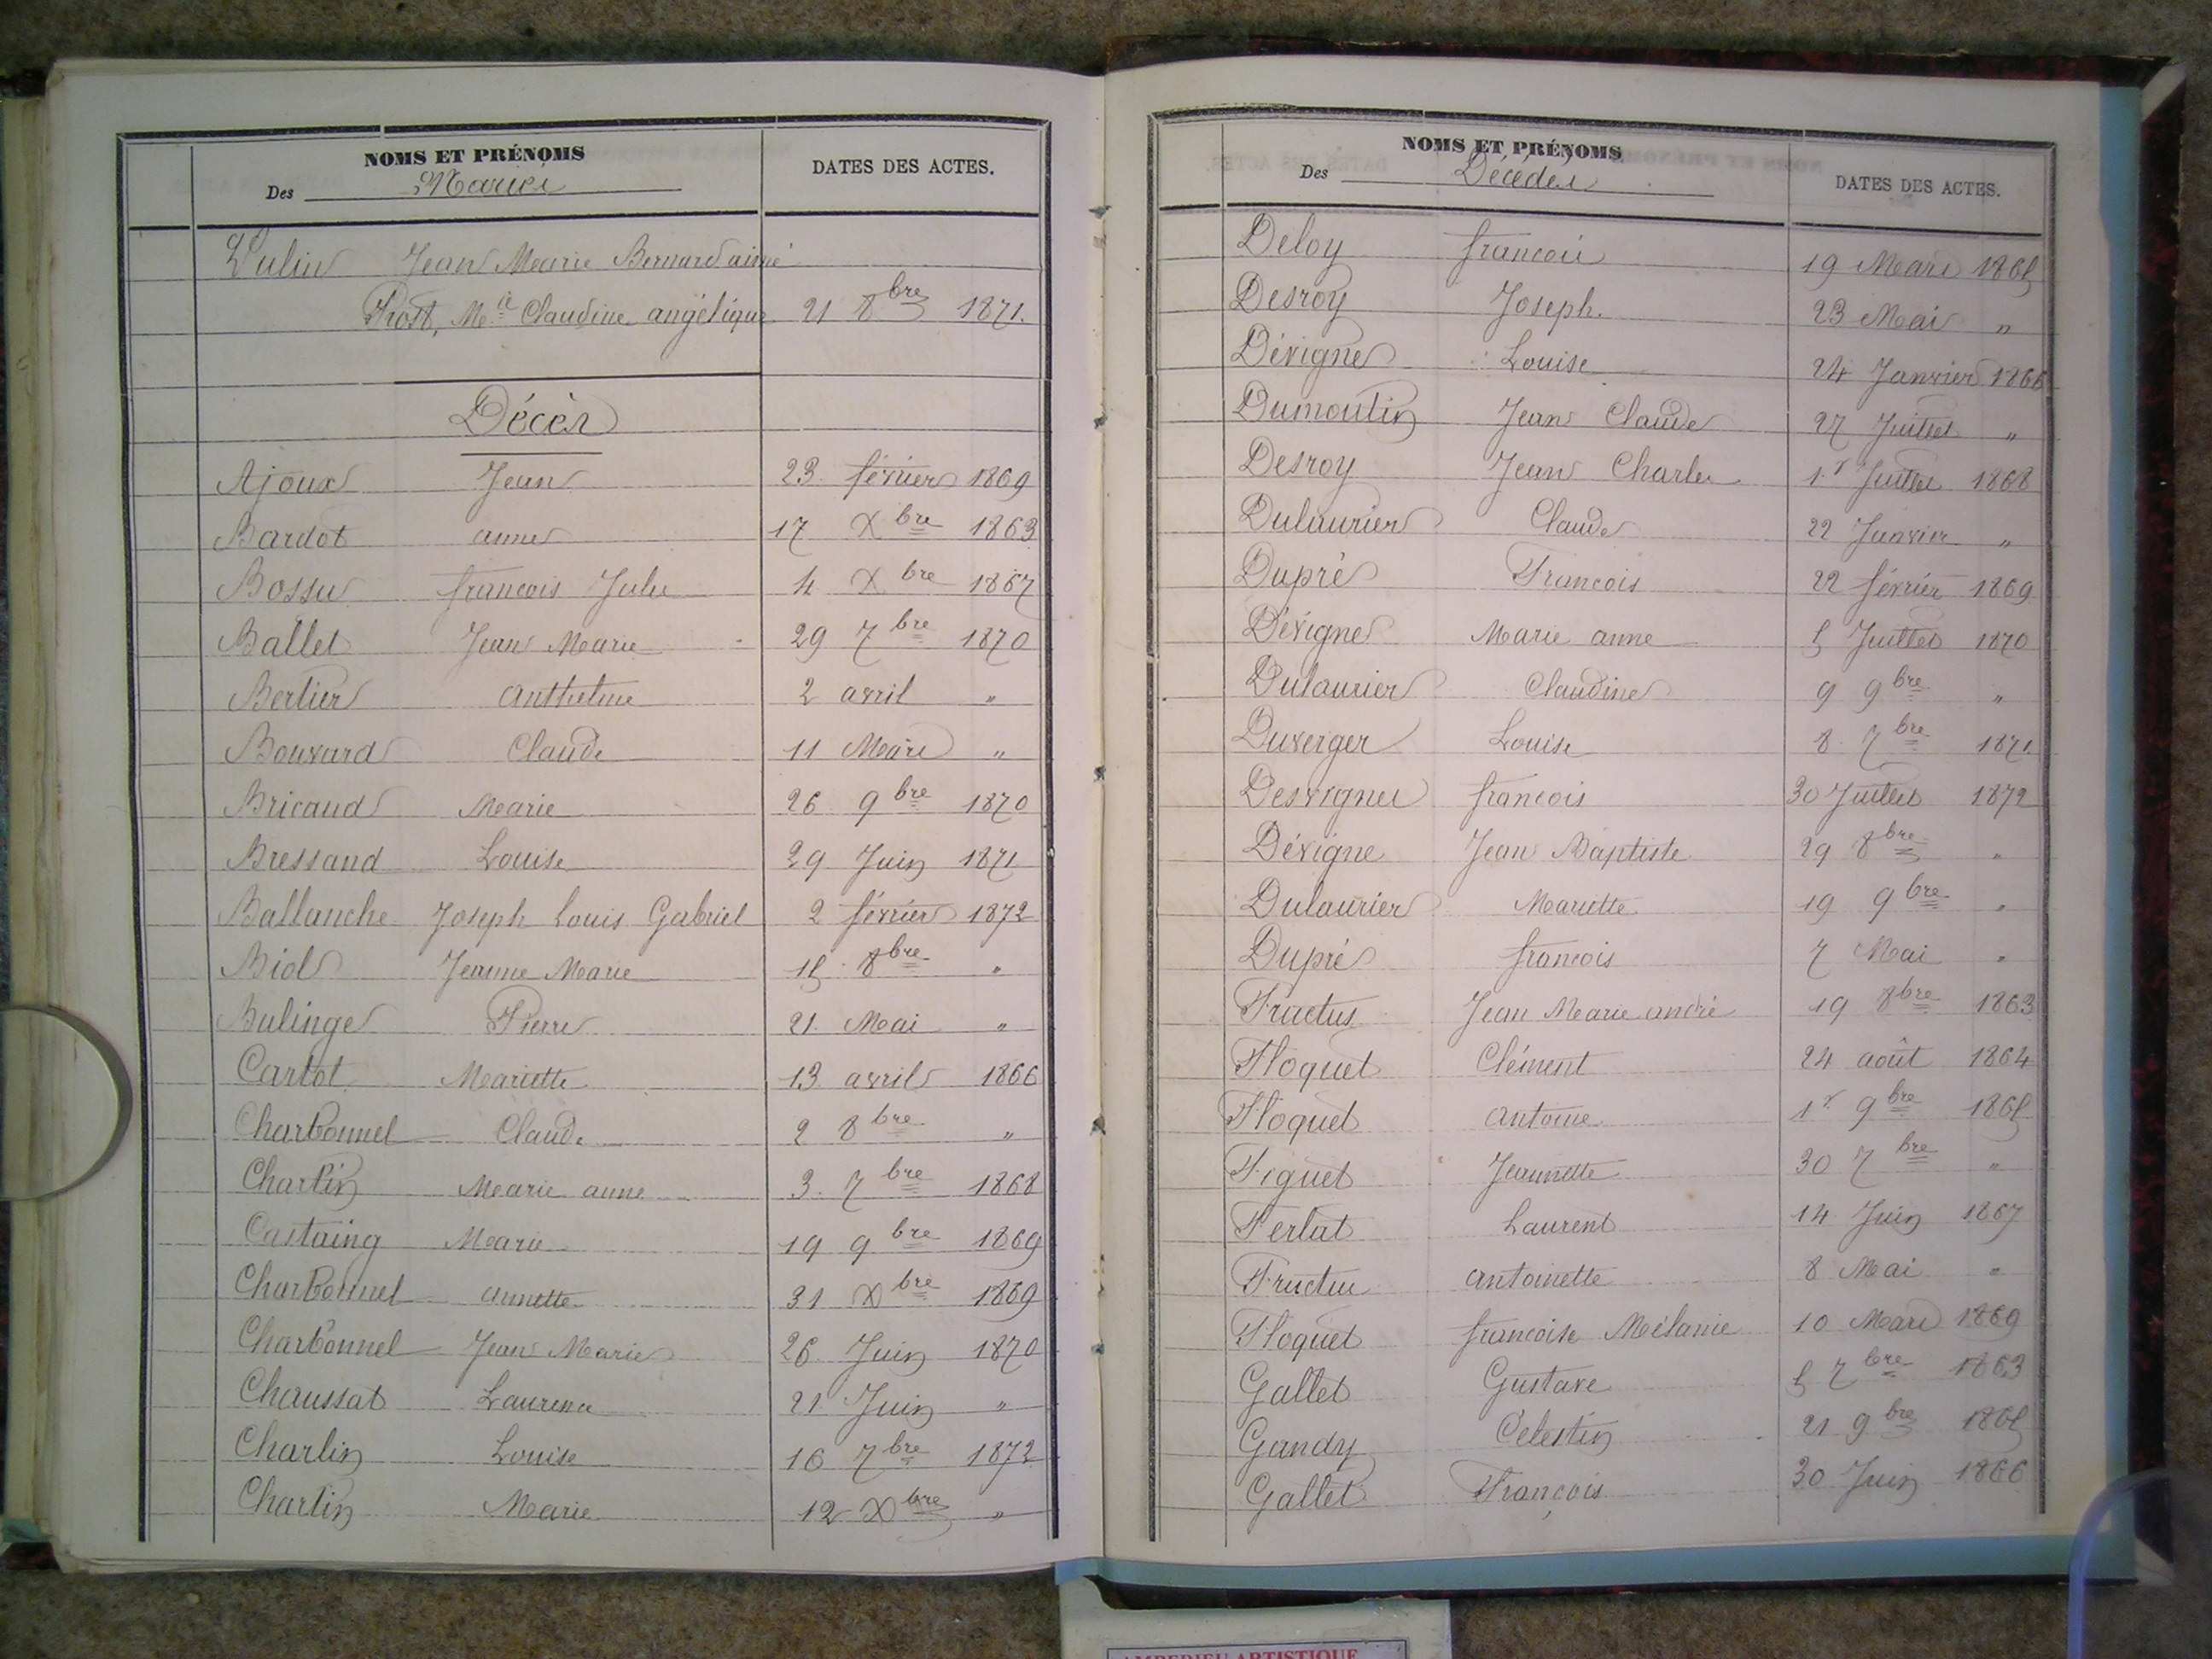 NOMS ET PRÉNOMS
Des Mariés
DATES DES ACTES.
Jean Marie Bernard aimé
Prost, Mie Claudine angélique 21 8bre 1871.
Décès
Ajoux Jean 23 février 1869
Bardot anne 17 Xbre 1863
Bossu francois Jules 4 Xbre 1867
Ballet Jean Marie 29 7bre 1870
Berlier anthelme 2 avril "
Bouvard Claude 11 Mars "
Bricaud Marie 26 9bre 1870
Bressand Louise 29 Juin 1871
Ballanche Joseph Louis Gabriel 2 février 1872
Biol Jeanne Marie 15 8bre "
Bulinge Pierre 21 Mai "
Cartot Mariette 13 avril 1866
Charbonnel Claude 2 8bre "
Charlin Marie anne 3 7bre 1868
Castaing Marie 19 9bre 1869
Charbonnel annette 31 Xbre 1869
Charbonnel Jean Marie 26 Juin 1870
Chaussat Laurence 21 Juin "
Charlin Louise 16 7bre 1872
Charlin Marie 12 Xbre "
NOMS ET PRÉNOMS
Des Décédés
DATES DES ACTES.
Deloy francois 19 Mars 1865
Desroy Joseph. 23 Mai "
Dévigne Louise 24 Janvier 1866
Dumoulin Jean Claude 27 Juillet "
Desroy Jean Charles 1.r Juillet 1868
Dulaurier Claude 22 Janvier "
Dupré Francois 22 février 1869
Dévigne Marie anne 5 Juillet 1870
Dulaurier Claudine 9 9bre "
Duverger Louise 8 7bre 1871
Desvignes francois 30 Juillet 1872
Dévigne Jean Baptiste 29 8bre "
Dulaurier Mariette 19 9bre "
Dupré francois 7 Mai "
Fructus Jean Marie andré 19 8bre 1863
Floquet Clément 24 août 1864
Floquet antoine 1r 9bre 1865
Figuet Jeannette 30 7bre "
Ferlat Laurent 14 Juin 1867
Fructus antoinette 8 Mai "
Floquet francoise Mélanie 10 Mars 1869
Gallet Gustave 5 7bre 1863
Gandy Célestin 21 9bre 1865
Gallet François 30 Juin 1866
AMBERIEU ARTISTIQUE